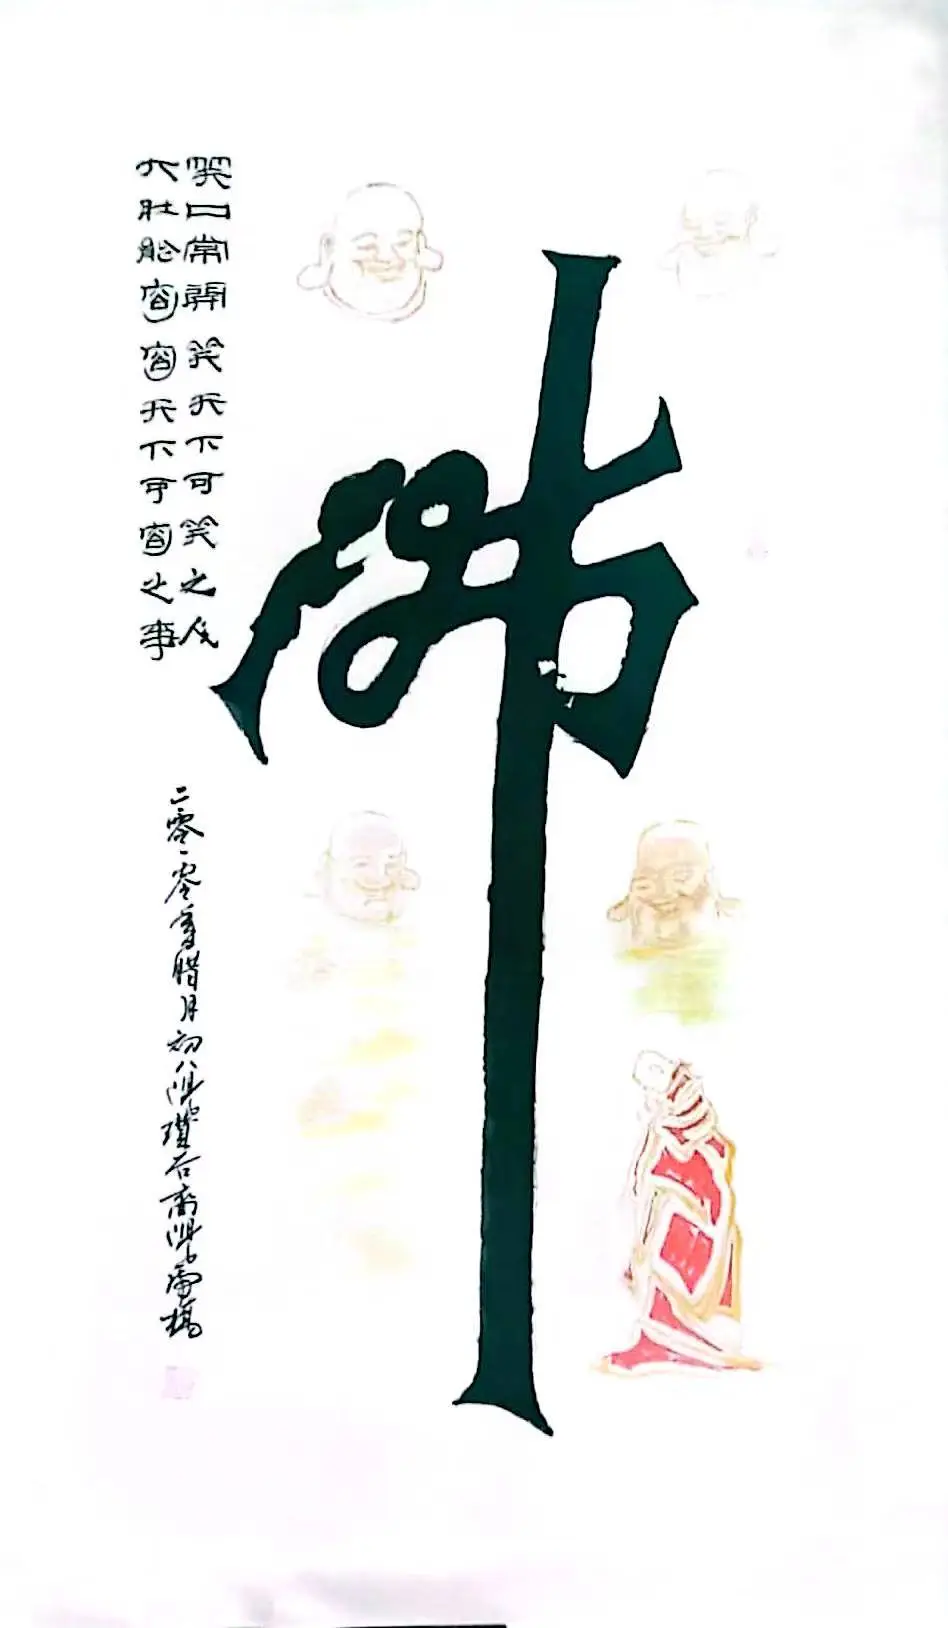 佛
笑口常開笑天下可笑之人
大肚能容容天下可容之事
二零一零年腊月初八